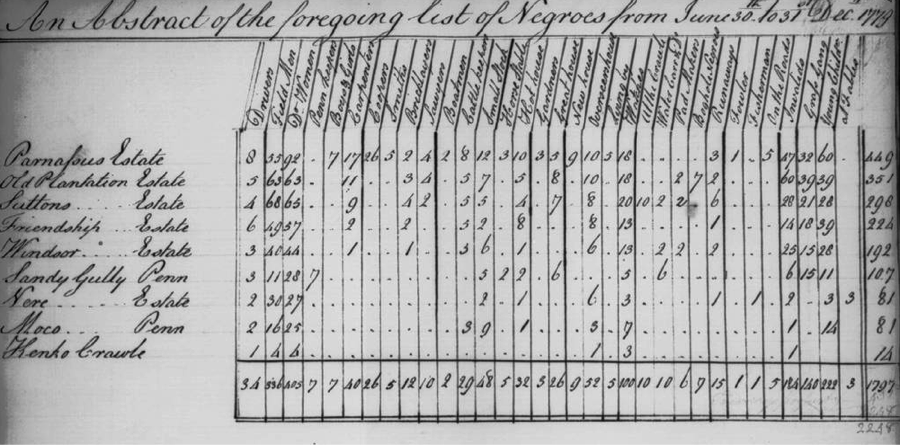 An Abstract of the foregoing list of Negroes from June 30th. to 31st Decr. 1779
Drivers
Field Men
Do Women
Penn keepers
Boys & Girls
Carpenters
Coopers
Smiths
Bricklayers
Sawyers
Boatmen
Cattle keepers
Small Stock
Horse Stable
Hot house
Gardners
Great house
New house
Overseers house
Water
Runaways
Fisherman
On the Roads
Invalids
Grass Gang
Young Childn
Parnassus Estate 8 55 92 . 7 17 26 5 2 4 2 8 12 3 10 3 5 9 10 5 18 . . . . 3 1 . 5 47 32 60 . 449
Old Plantation Estate 5 63 63 . . 11 . . 3 4 . 5 7 . 5 . 8 . 10 . 18 . . 2 7 2 . . . 60 39 39 . 351
Suttons Estate 4 68 65 . . 9 . . 4 2 . 5 5 . 4 . 7 . 8 . 20 10 2 2 . 6 . . . 28 21 28 . 298
Friendship Estate 6 49 37 . . 2 . . 2 . . 5 2 . 8 . . . 8 . 13 . . . . 1 . . . 14 18 39 . 224
Windsor Estate 3 40 44 . . 1 . . 1 . . 3 6 . 1 . . . 6 . 13 . 2 2 . 2 . . . 25 15 28 . 192
Sandy Gully Penn 3 11 28 7 . . . . . . . . 5 2 2 . 6 . . . 5 . 6 . . . . . . 6 15 11 . 107
New Estate 2 30 27 . . . . . . . . . 2 . 1 . . . 6 . 3 . . . . 1 . 1 . 2 . 3 3 81
Moco Penn 2 16 25 . . . . . . . . 3 9 . 1 . . . 3 . 7 . . . . . . . . 1 . 14 . 81
1 4 4 . . . . . . . . . . . . . . . 1 . 3 . . . . . . . . 1 . . . 14
34 336 405 7 7 40 26 5 12 10 2 29 48 5 32 3 26 9 52 5 100 10 10 6 7 15 1 1 5 184 140 222 3 1797
2248